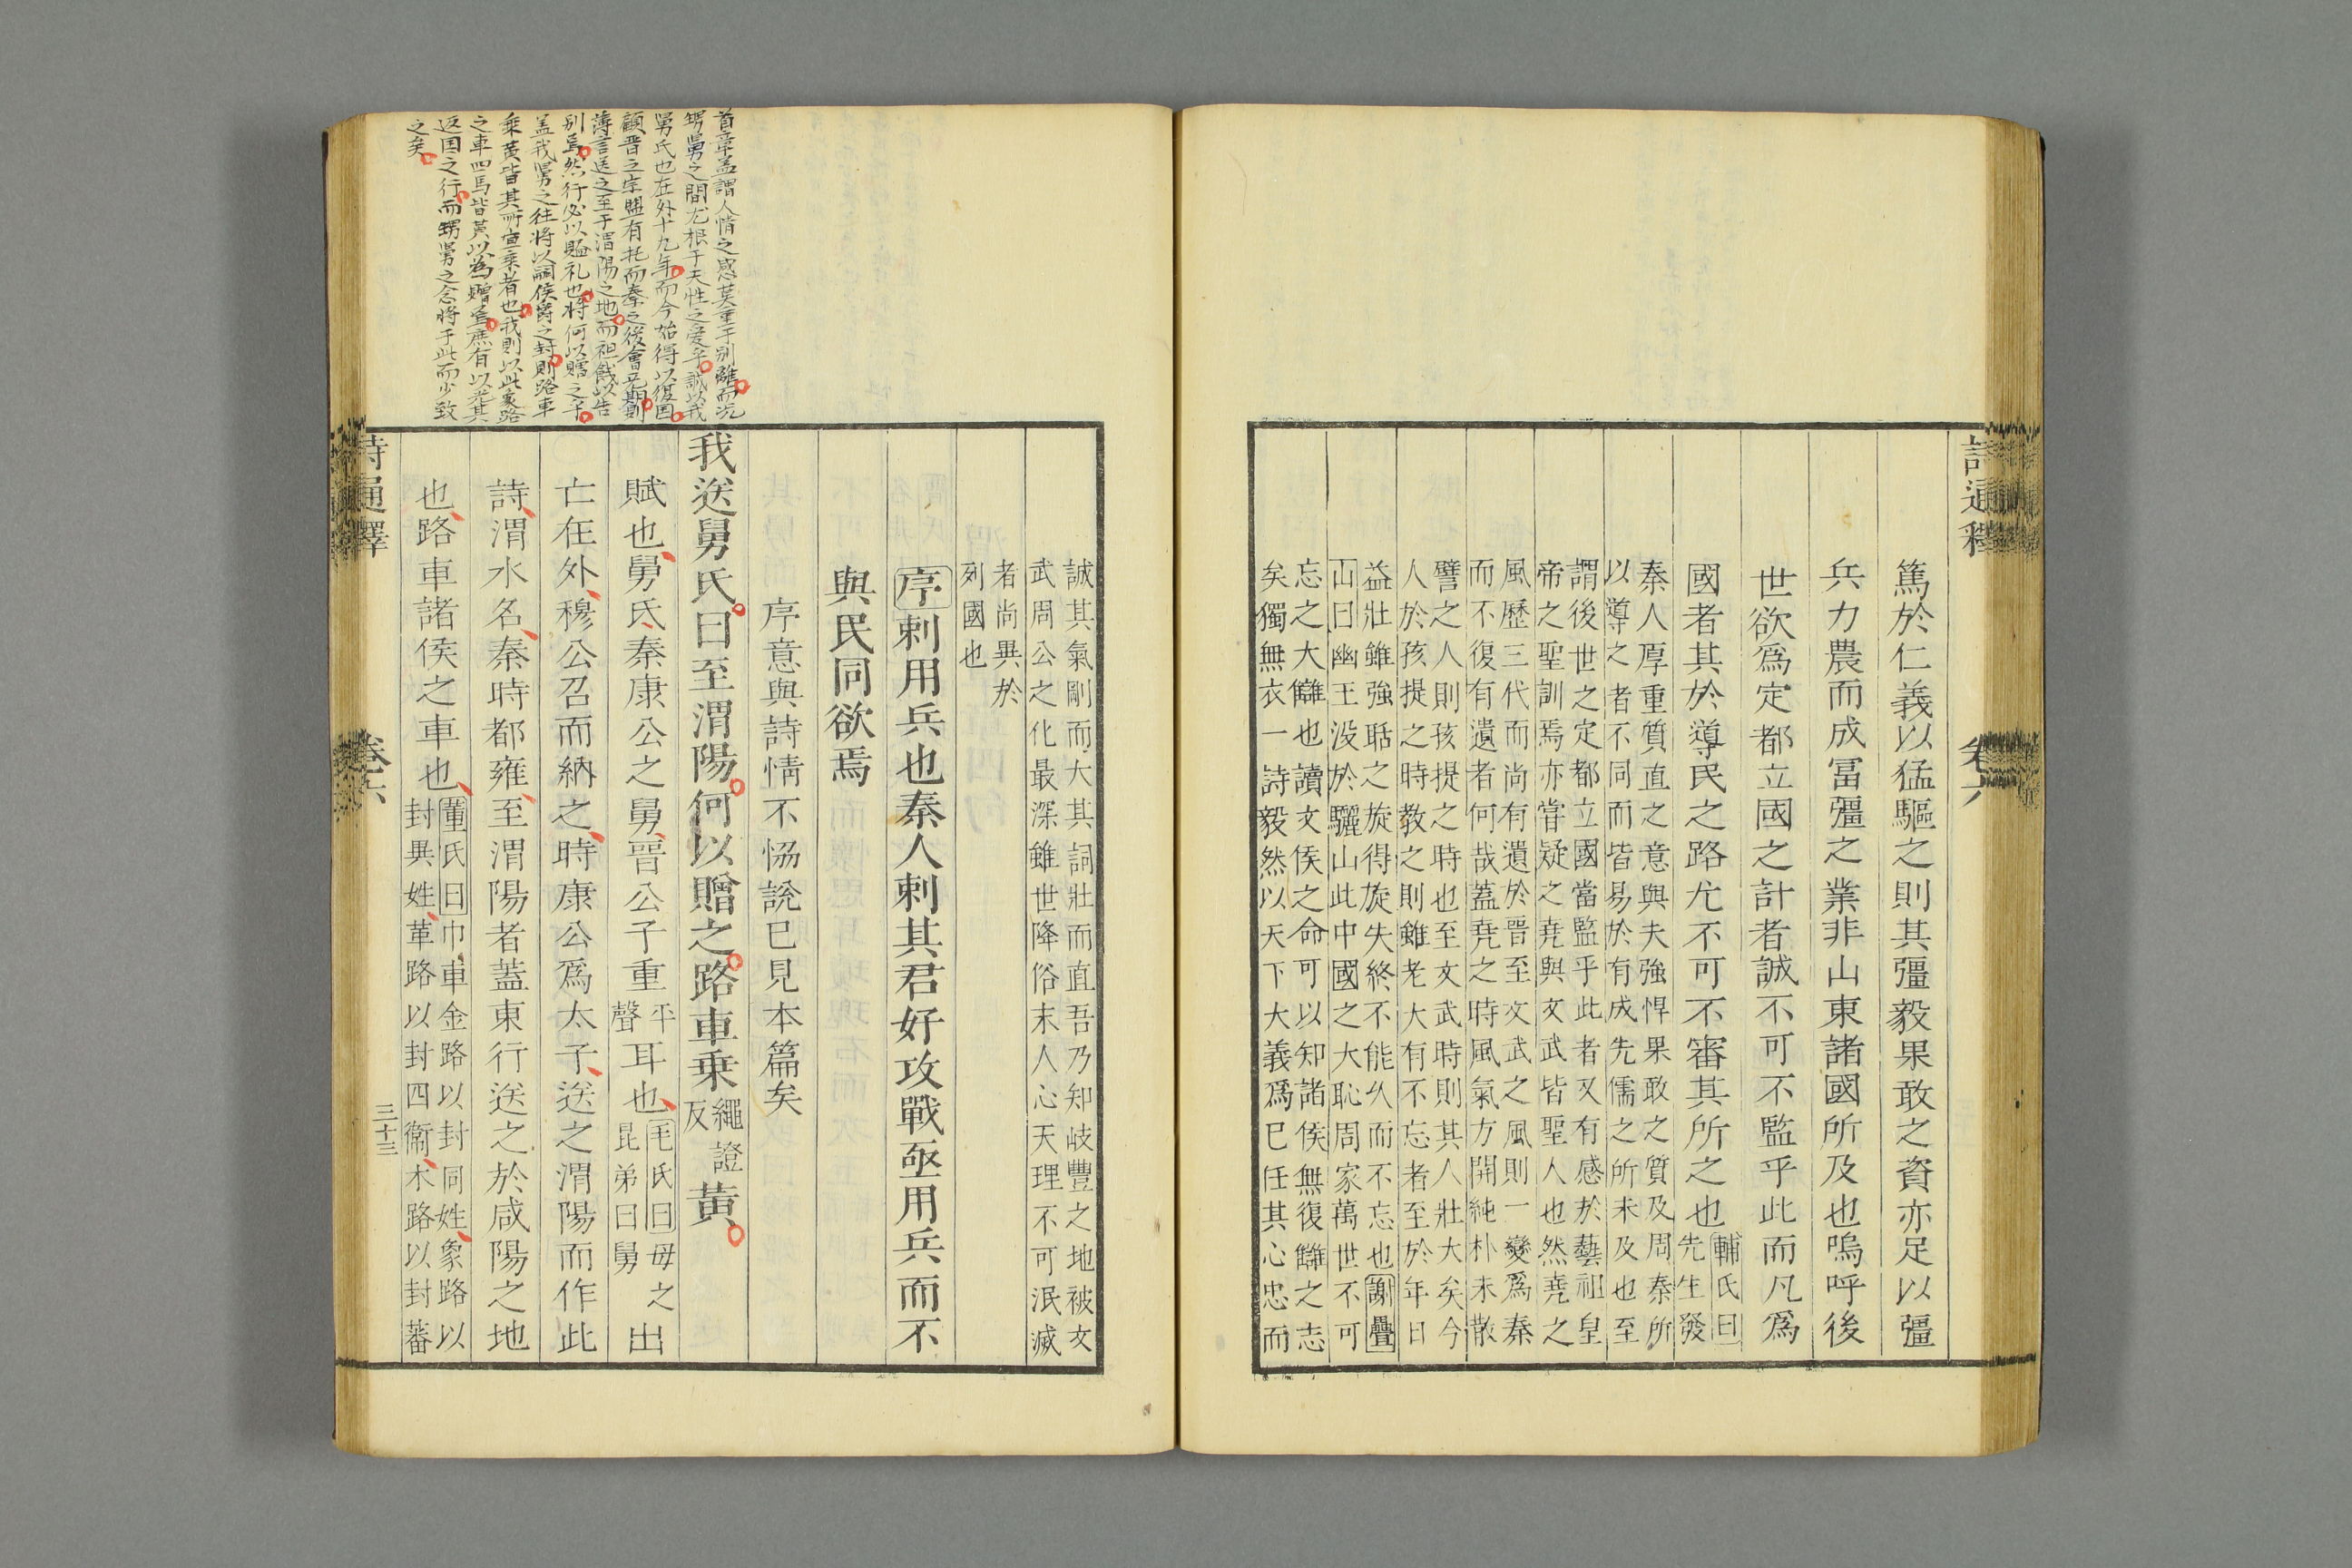 詩通釋
卷六
篤於仁義以猛驅之則其彊毅果敢之資亦足以彊
兵力農而成冨彊之業非山東諸國所及也嗚呼後
世欲爲定都立國之計者誠不可不監乎此而凡爲
國者其於導民之路尤不可不審其所之也輔氏曰
先生發
秦人厚重質直之意與夫強悍果敢之質及周秦所
以導之者不同而皆易於有成先儒之所未及也至
謂後世之定都立國當監乎此者又有感於藝祖皇
帝之聖訓焉亦嘗疑之堯與文武皆聖人也然堯之
風歷三代而尚有遺於晉至文武之風則一變爲秦
而不復有遺者何哉蓋堯之時風氣方開純朴未散
譬之人則孩提之時也至文武時則其人壯大矣今
人於孩提之時教之則雖老大有不忘者至於年日
益壯雖強聒之旋得旋失終不能久而不忘也謝疊
山曰幽王没於驪山此中國之大恥周家萬世不可
忘之大讎也讀文侯之命可以知諸侯無復讎之志
矣獨無衣一詩毅然以天下大義爲已任其心忠而
誠其氣剛而大其詞壯而直吾乃知岐豐之地被文
武周公之化最深雖世降俗末人心天理不可泯滅
者尚異於
列國也
序刺用兵也秦人刺其君好攻戰亟用兵而不
與民同欲焉
序意與詩情不恊説已見本篇矣
我送舅氏曰至渭陽何以贈之路車乗繩證
反黄
賦也舅氏秦康公之舅晉公子重平
聲耳也毛氏曰母之
昆弟曰舅出
亡在外穆公召而納之時康公爲太子送之渭陽而作此
詩渭水名秦時都雍至渭陽者蓋東行送之於咸陽之地
也路車諸侯之車也董氏曰巾車金路以封同姓象路以
封異姓革路以封四衞木路以封蕃
詩通釋
卷六
三十三
首章盖謂人情之感莫重于别離而况
甥舅之間尤根于天性之愛乎誠以我
舅氏也在外十九年而今始得以復国
顧晋之宗盟有托而秦之後會无期割
薄言送之至于渭陽之地而祖餞以告
别焉然行必以贐礼也将何以贈之乎
盖我舅之往将以嗣侯爵之封則路車
乗黄皆其所宜乗者也我則以此象路
之車四馬皆黄以為贈焉庶有以光其
返国之行而甥舅之念将于此而少致
之矣